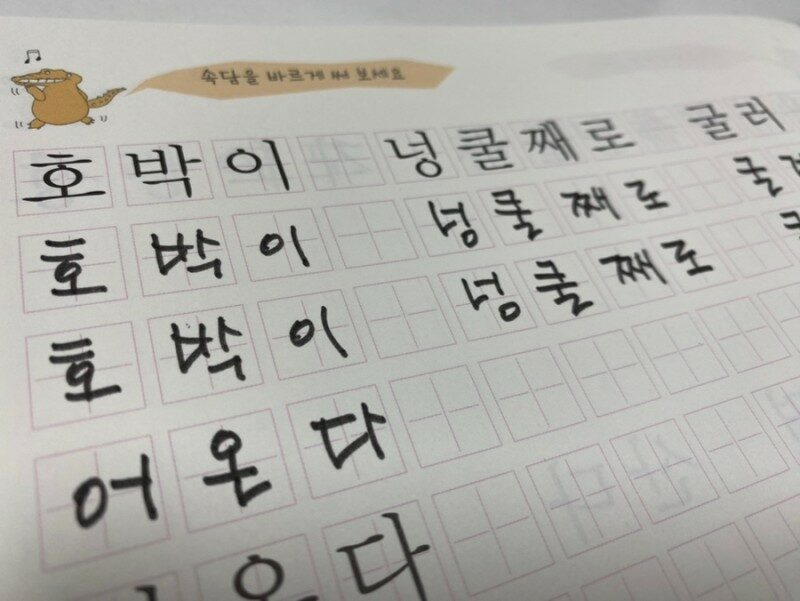 속담을 바르게 써 보세요
호박이 넝쿨째로 굴러
호박이 넝쿨째로 굴
호박이 넝쿨째로
어온다
온다